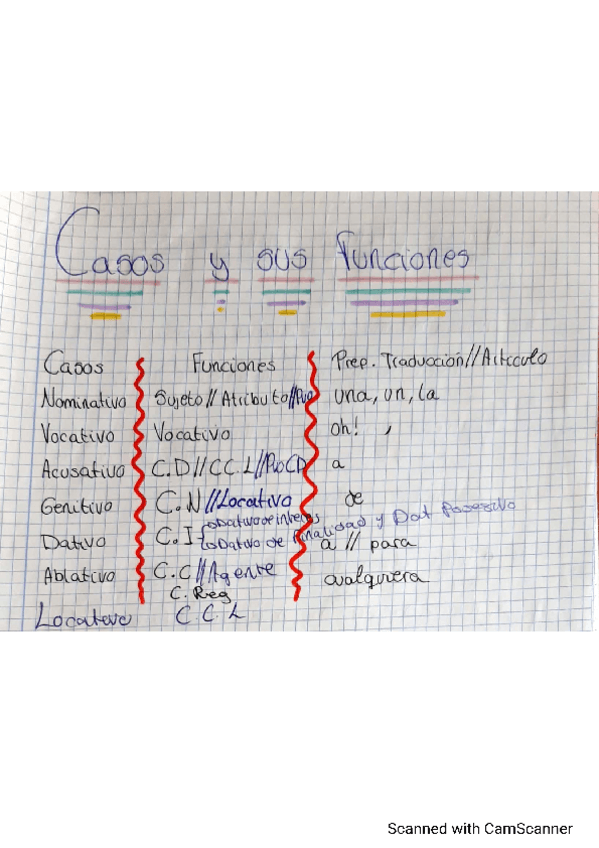 Casos y sus funciones
Casos Funciones Prep. Traducción//Artículo
Nominativo Sujeto//Atributo//Pvo una, un, la
Vocativo Vocativo oh! ,
Acusativo C.D//C.C.L//PvoCD a
Genitivo C.N//Locativo de
Dativo C.I Dativo de interes
Dativo de finalidad y Dat Posesivo
a // para
Ablativo C.C//Agente cualquiera
C. Reg
Locativo C.C.L
Scanned with CamScanner